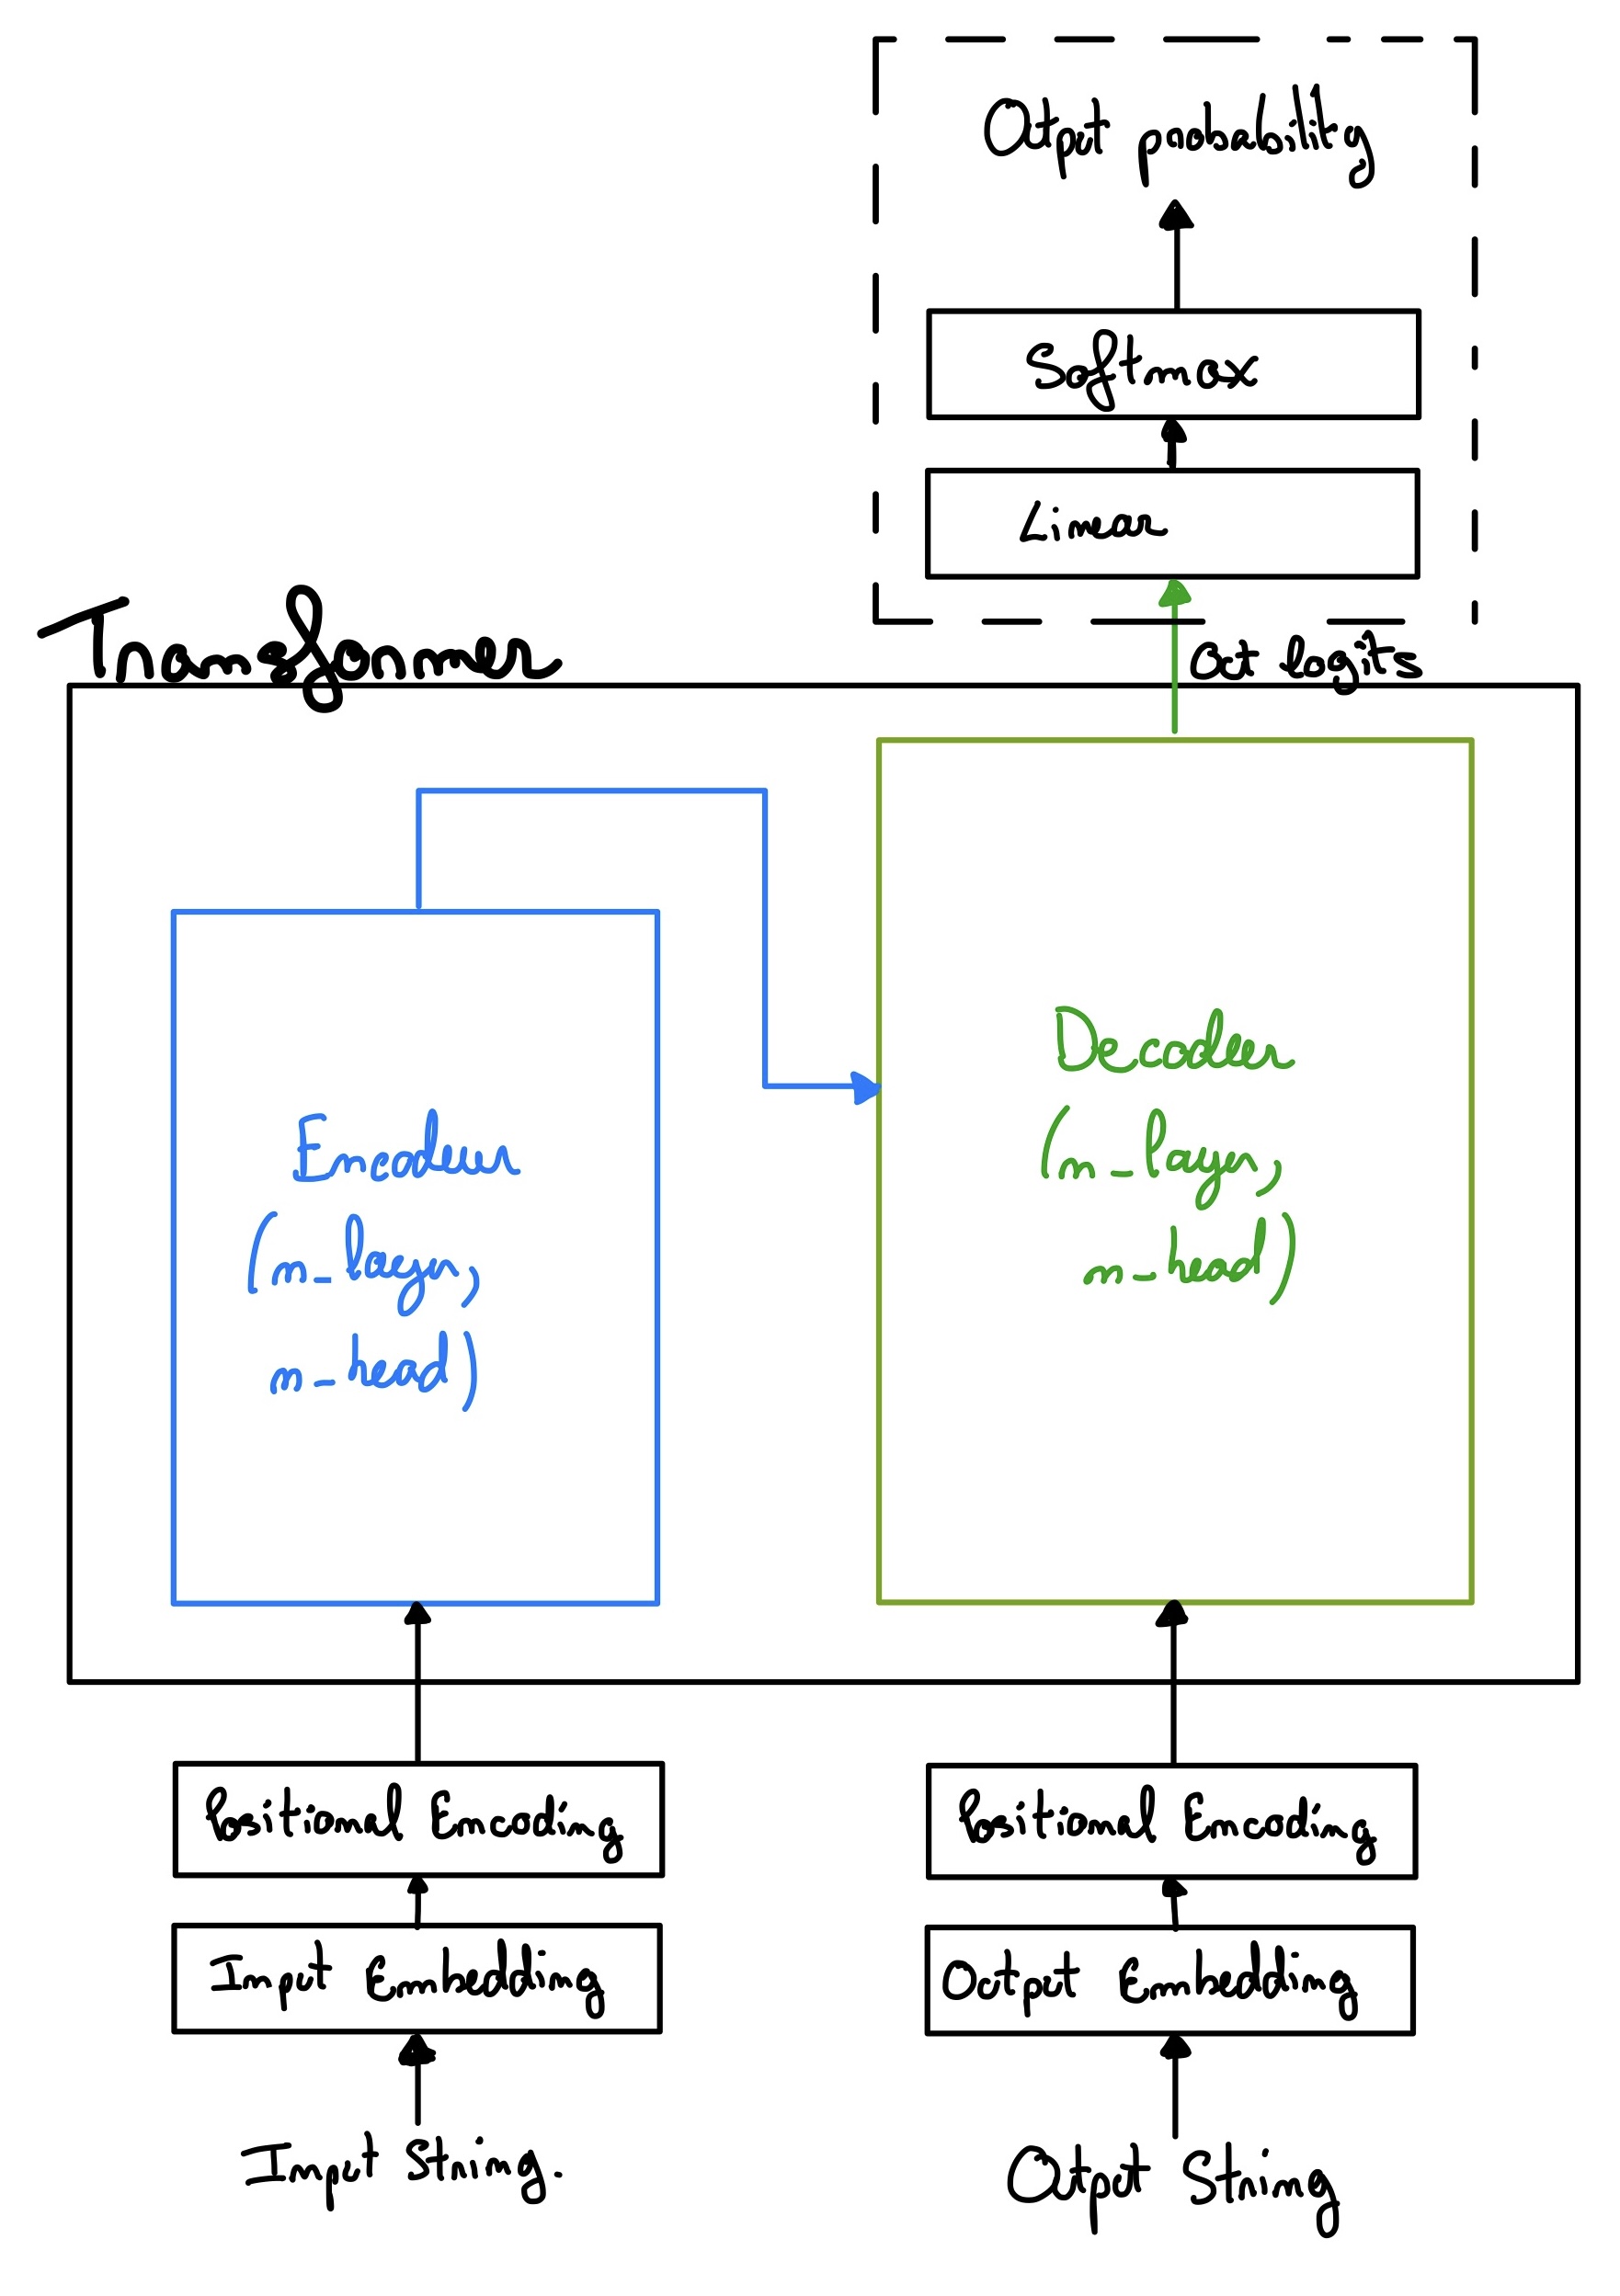 Output probability
Softmax
Linear
Transformer
out logits
Encoder
(n_layer,
n_head)
Decoder
(n_layer,
n_head)
Positional Encoding
Input Embedding
Input String.
Positional Encoding
Output Embedding
Output String